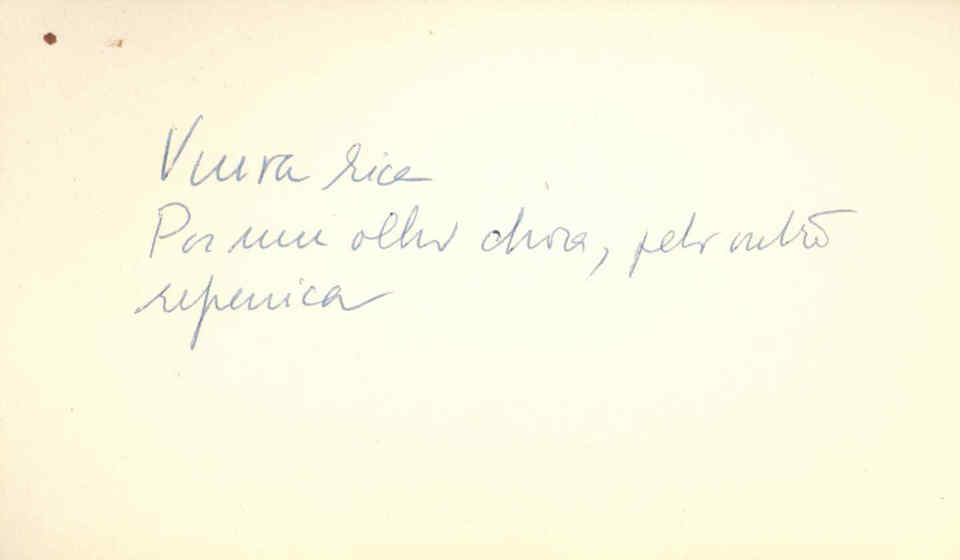 Viuva rica
Por um olho chora, pelo outro
repenica